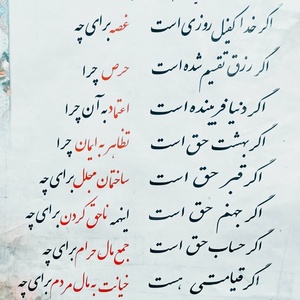 اگر خدا کفیل روزی است غصه برای چه
اگر رزق تقسیم شده است حرص چرا
اگر دنیا فریبنده است اعتماد به آن چرا
اگر بهشت حق است تظاهر به ایمان چرا
اگر قبر حق است ساختمان مجلل برای چه
اگر جهنم حق است اینهمه ناحق کردن برای چه
اگر حساب حق است جمع مال حرام برای چه
اگر قیامتی هست خیانت به مال مردم برای چه